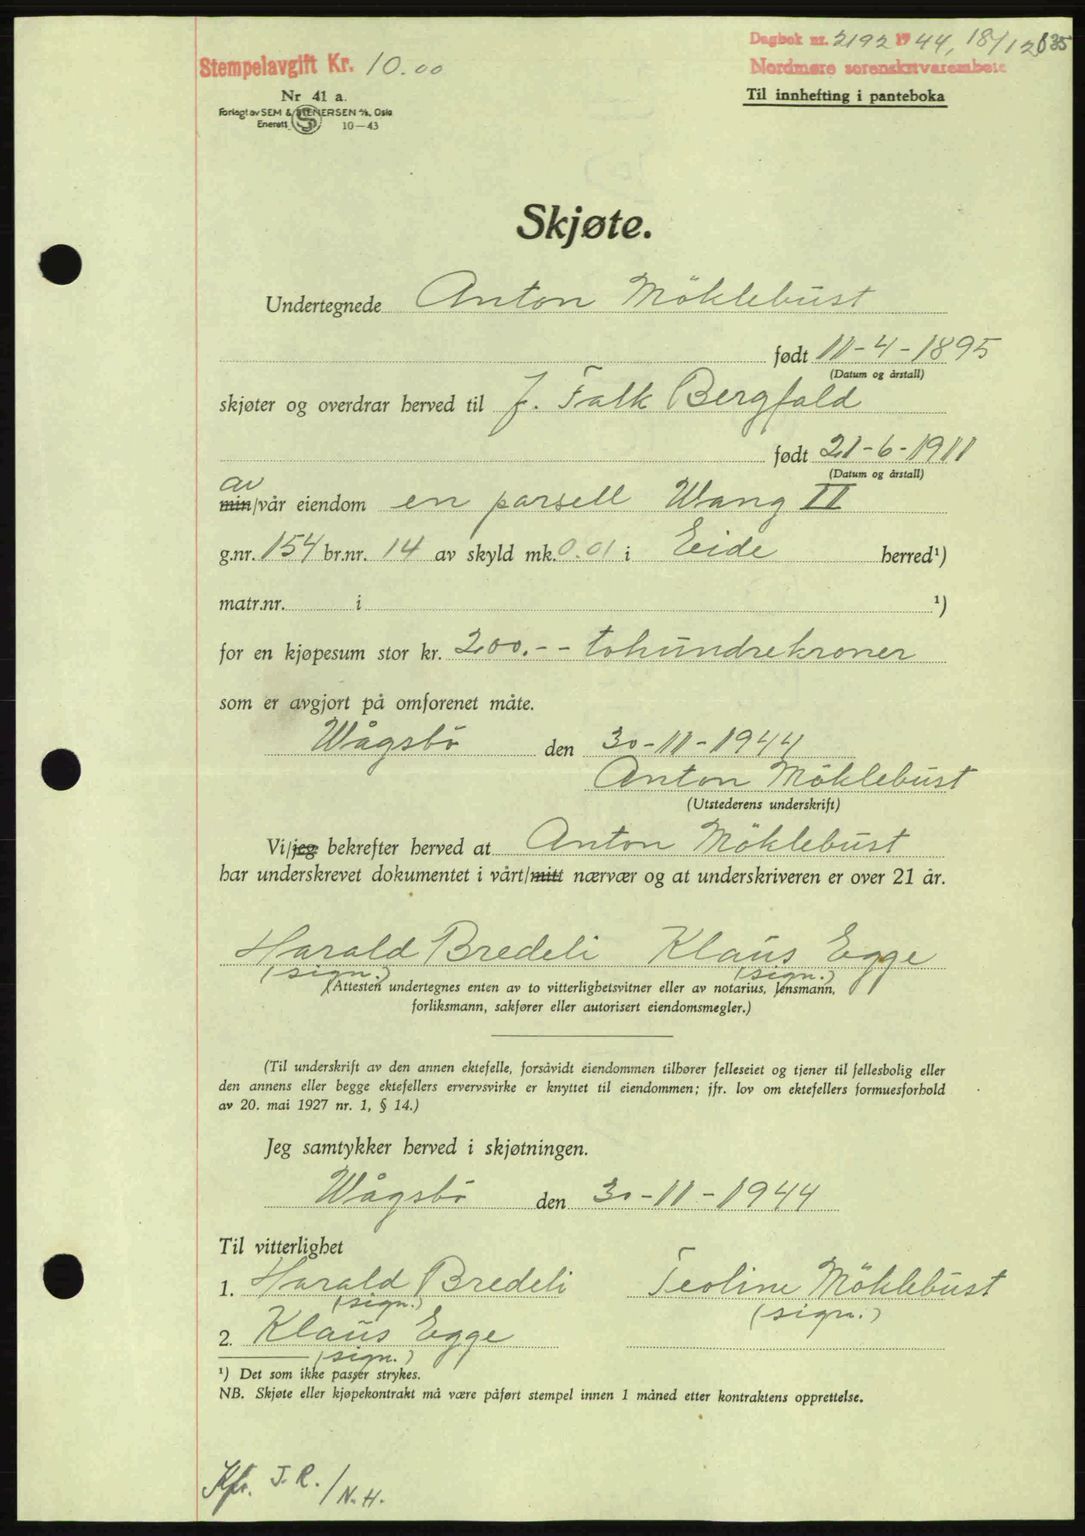 Stempelavgift Kr. 10.00
Dagbok nr. 2192 1944, 18/12 835
Nordmøre sorenskrivarembete
Nr 41 a.
Til innhefting i panteboka
Forlagt av SEM & STENERSEN A/S, Oslo
Enerett 10—43
Skjøte.
Undertegnede Anton Möklebust
født 11-4-1895
(Datum og årstall)
skjøter og overdrar herved til J. Falk Bergfald
født 21-6-1911
(Datum og årstall)
av
min/vår eiendom en parsell Wang II
g.nr. 154 br.nr. 14 av skyld mk. 0.01 i Eide herred¹)
matr.nr. i ¹)
for en kjøpesum stor kr. 200.-- tohundrekroner
som er avgjort på omforenet måte.
Wågsbö den 30-11-1944
Anton Möklebust
(Utstederens underskrift)
Vi/jeg bekrefter herved at Anton Möklebust
har underskrevet dokumentet i vårt/mitt nærvær og at underskriveren er over 21 år.
Harald Bredeli Klaus Egge
(sign.) (sign.)
(Attesten undertegnes enten av to vitterlighetsvitner eller av notarius, lensmann,
forliksmann, sakfører eller autorisert eiendomsmegler.)
(Til underskrift av den annen ektefelle, forsåvidt eiendommen tilhører felleseiet og tjener til fellesbolig eller
den annens eller begge ektefellers ervervsvirke er knyttet til eiendommen; jfr. lov om ektefellers formuesforhold
av 20. mai 1927 nr. 1, § 14.)
Jeg samtykker herved i skjøtningen.
Wågsbö den 30-11-1944
Til vitterlighet
1. Harald Bredeli Teoline Möklebust
(sign.) (sign.)
2. Klaus Egge
(sign.)
¹) Det som ikke passer strykes.
NB. Skjøte eller kjøpekontrakt må være påført stempel innen 1 måned etter kontraktens opprettelse.
Kfr. J.R./N.H.